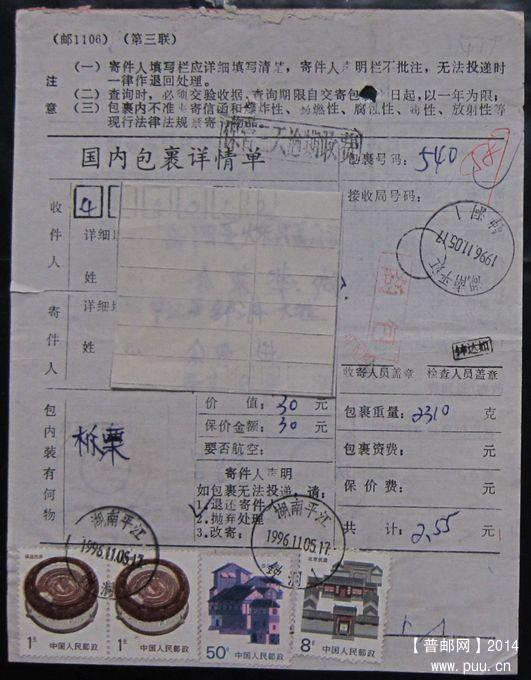 (邮1106) (第三联)
注意
(一) 寄件人填写栏应详细填写清楚，寄件人声明栏不批注，无法投递时一律作退回处理。
(二) 查询时，必须交验收据，查询期限自交寄包 日起，以一年为限；
(三) 包裹内不准 寄信函和爆炸性、易燃性、腐蚀性、毒性、放射性等
现行法律法规禁寄 物品。
国内包裹详情单
包裹号码：540
58
接收局号码：
收件人
4
详细地
姓
寄件人
详细地
姓
湖南平江
1996.11.05.17
钟洞
收寄人员盖章 检查人员盖章
包内装有何物
板栗
价 值：30 元
保价金额：30 元
要否航空：
寄件人声明
如包裹无法投递，请：
1.退还寄件
2.抛弃处理
3.改寄：
包裹重量：2310 克
包裹资费： 元
保 价 费： 元
共 计：2.55 元
湖南平江
1996.11.05.17
湖南平江
1996.11.05.17
1元
中国人民邮政
1元
中国人民邮政
50分
中国人民邮政
北京民居
8分
中国人民邮政
【普邮网】2014
www.puu.cn